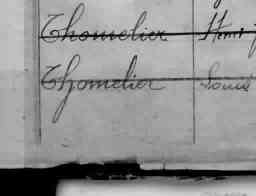 Thomelier Henri
Thomelier Louis